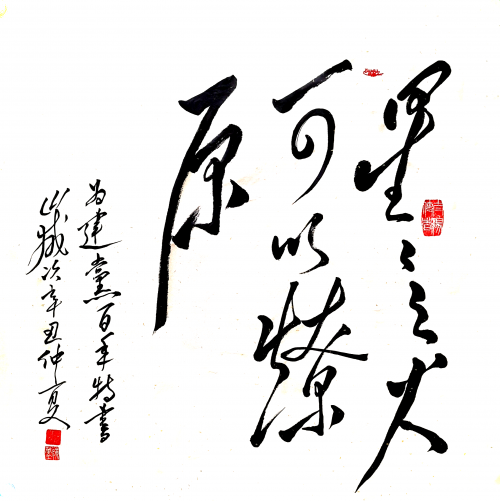 星星之火
可以燎
原
为建黨百年特書
嵗次辛丑仲夏